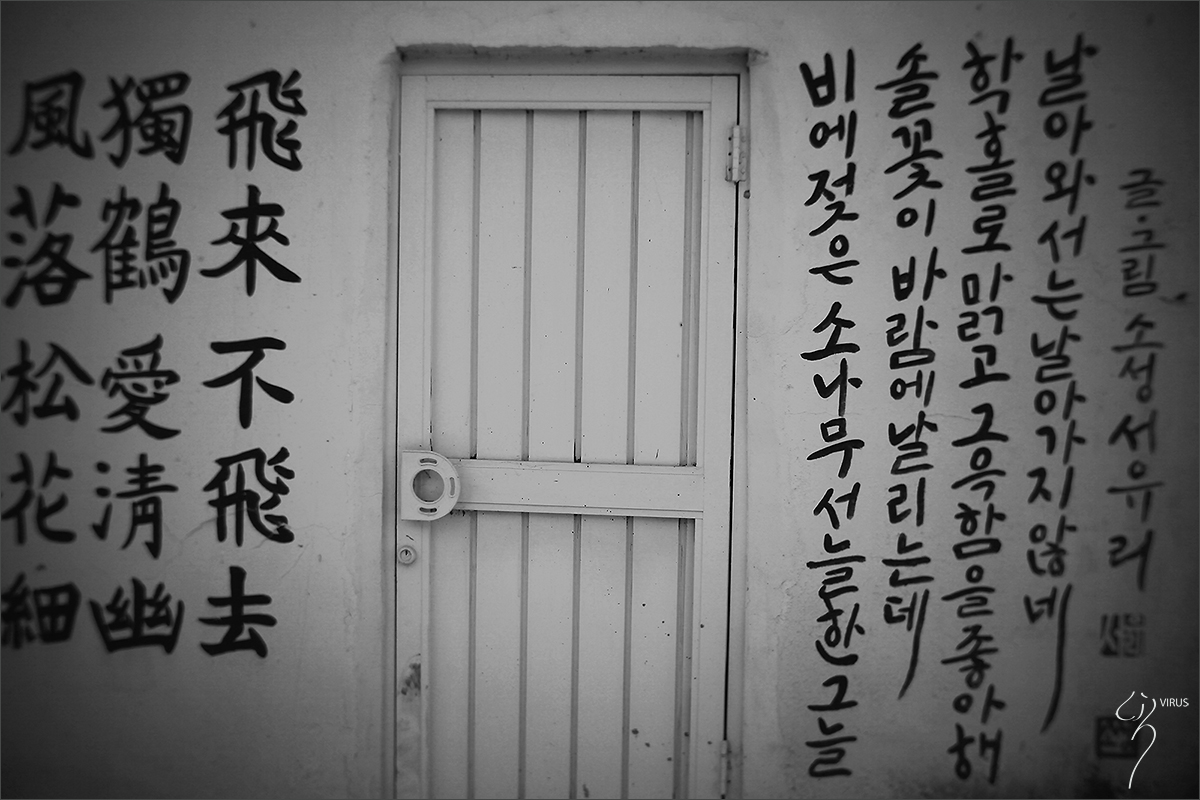 風落松花細
獨鶴愛淸幽
飛來不飛去
비에 젖은 소나무 서늘한 그늘
솔꽃이 바람에 날리는데
학 홀로 맑고 그윽함을 좋아해
날아와서는 날아가지 않네
글·그림 소성 서유리
VIRUS